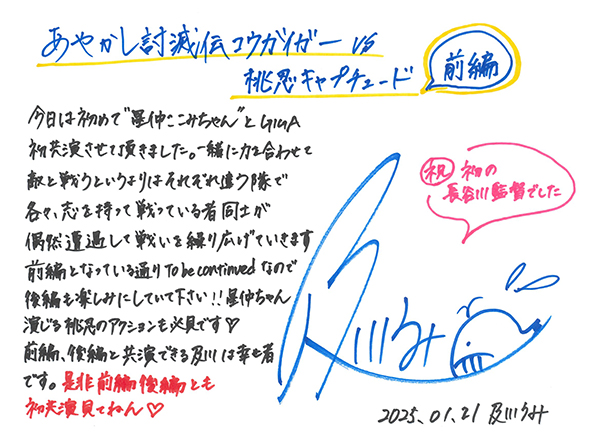 あやかし討滅伝コウガイガー VS
桃忍キャプチュード
前編
今日は初めて"星仲ここみちゃん"とGIGA
初共演させて頂きました。一緒に力を合わせて
敵と戦うというよりはそれぞれ違う隊で
各々、志を持って戦っている者同士が
偶然遭遇して戦いを繰り広げていきます
前編となっている通りTo be continuedなので
後編も楽しみにしていて下さい!!星仲ちゃん
演じる桃忍のアクションも必見です♡
前編、後編と共演できる及川は幸せ者
です。是非前編後編とも
初共演見てねん♡
祝 初の
長谷川監督でした
及川うみ
2025.01.21 及川うみ